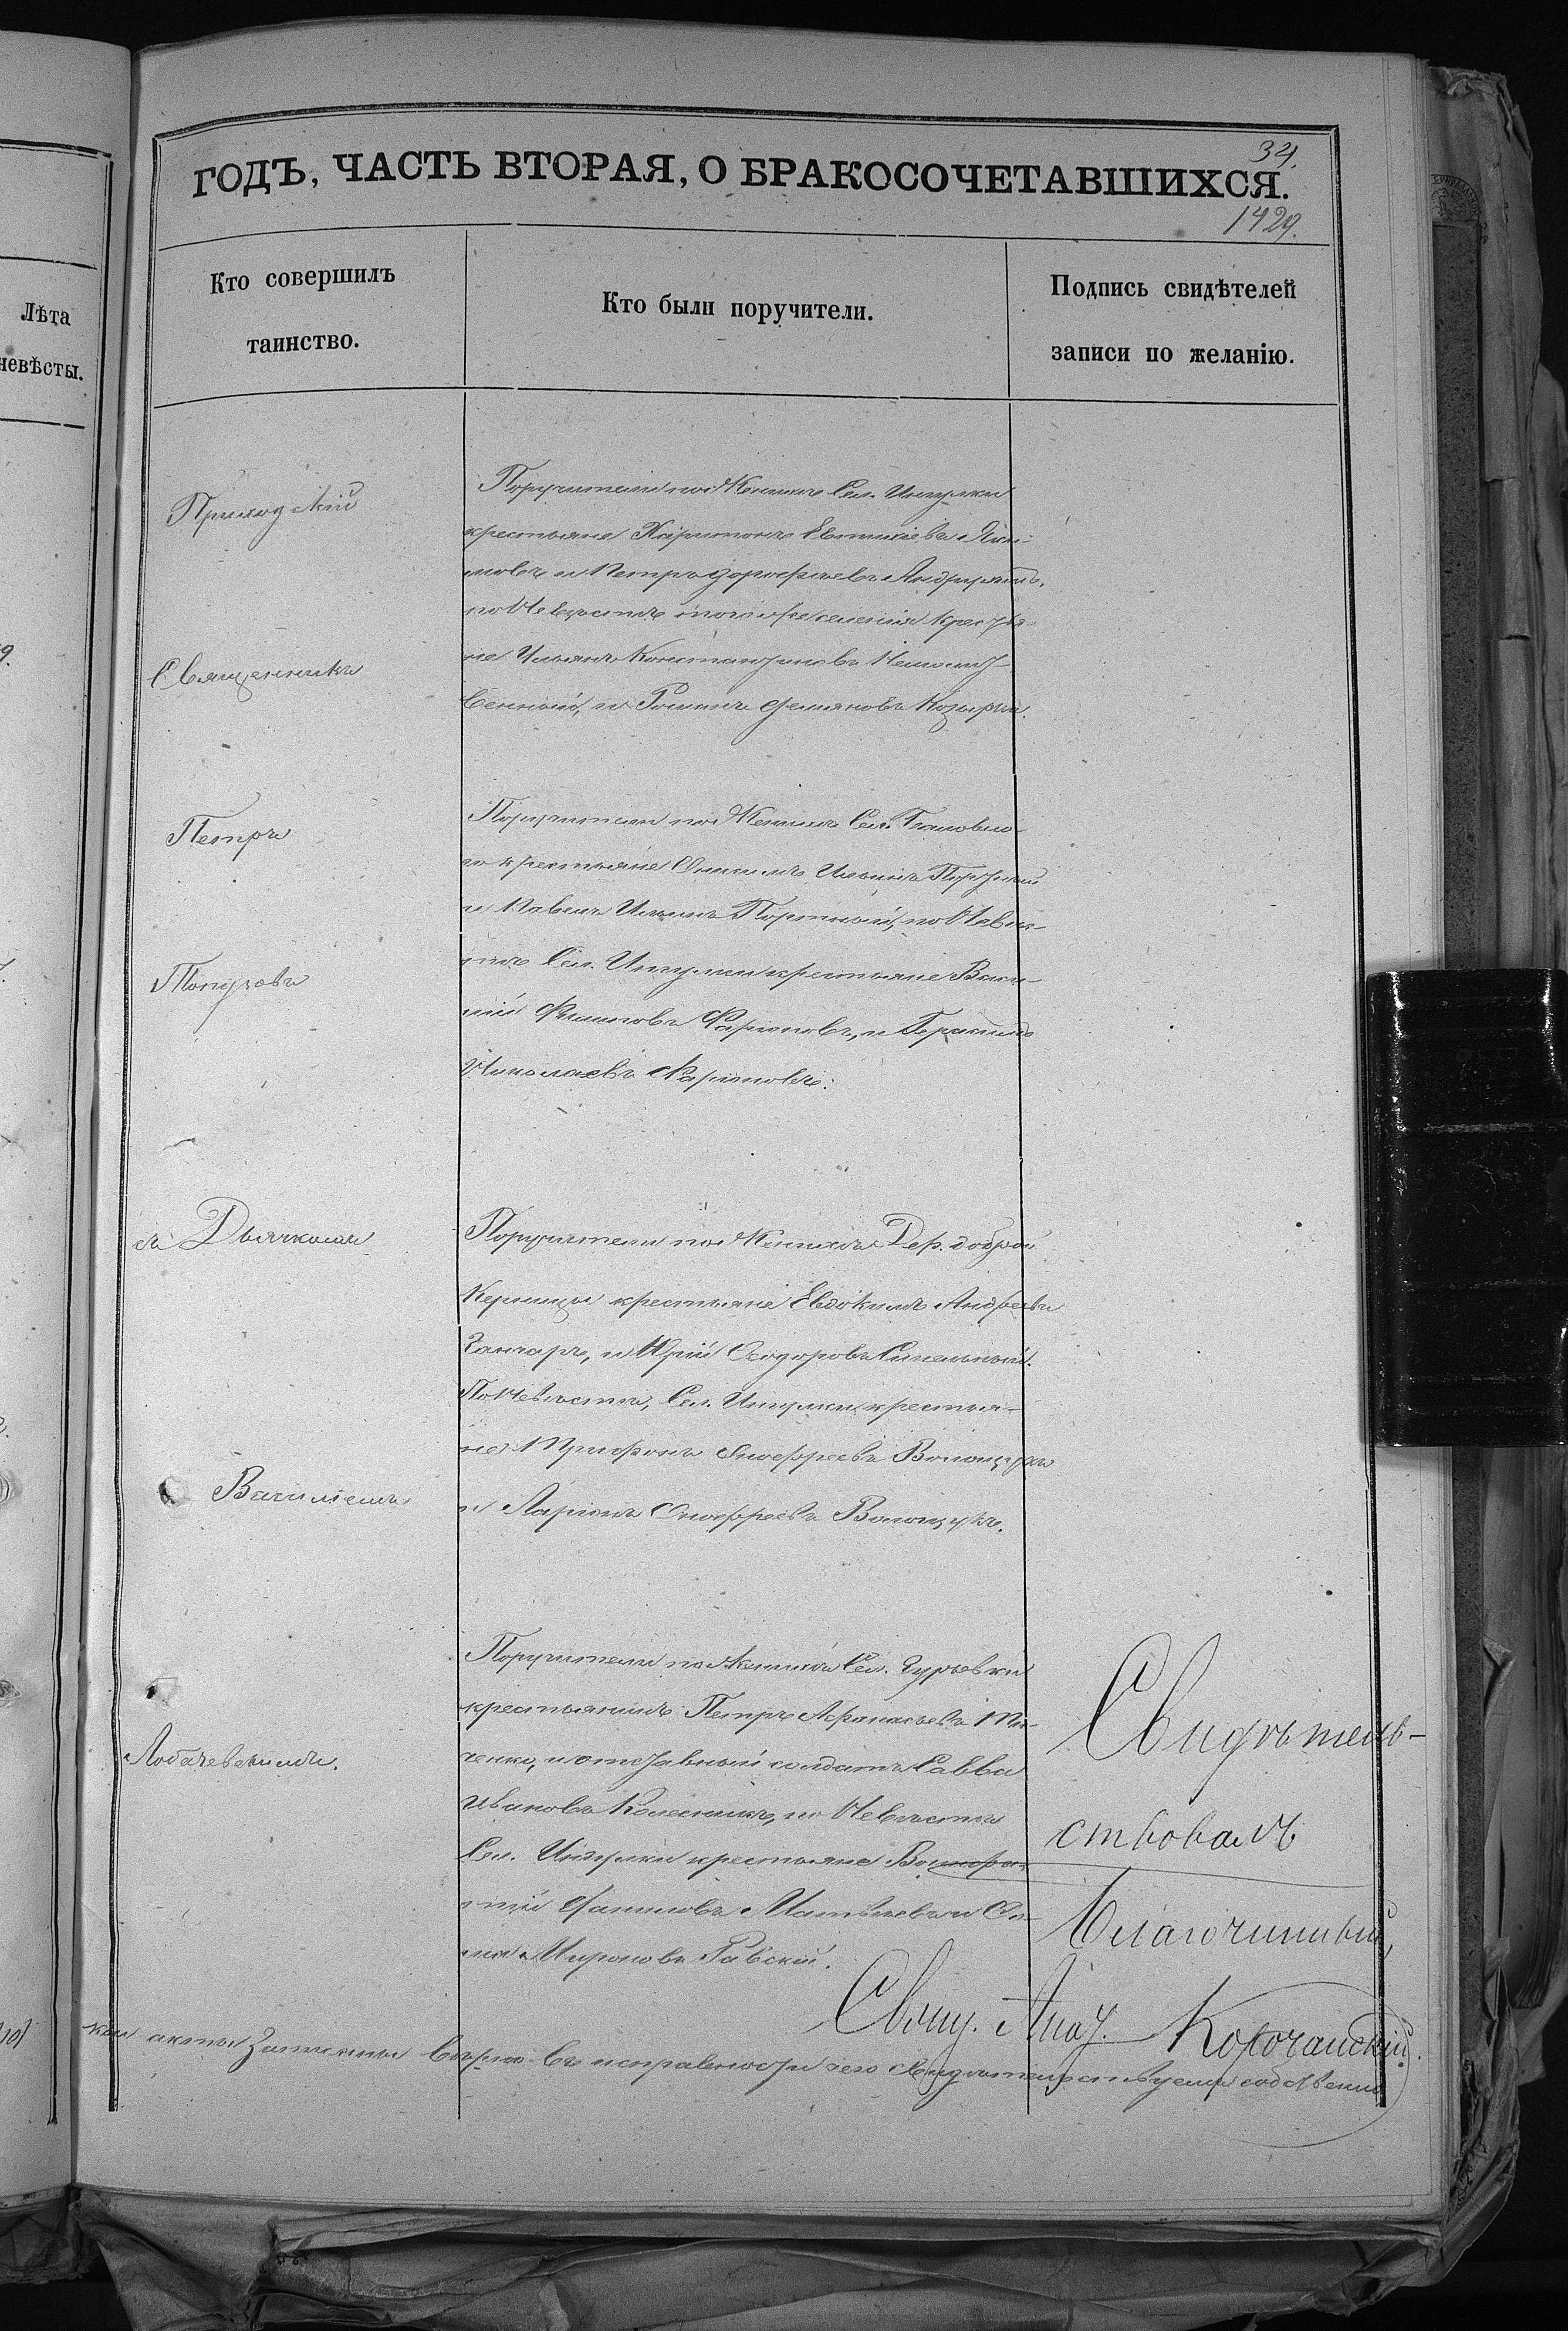 34.
ГОДЪ, ЧАСТЬ ВТОРАЯ, О БРАКОСОЧЕТАВШИХСЯ.
1429.
Лѣта
невѣсты.
Кто совершилъ
таинство.
Кто были поручители.
Подпись свидѣтелей
записи по желанію.
Приходскій
Священникъ
Петръ
съ Дьячкомъ
Василіемъ
Лобачевскимъ.
Поручители по Женихѣ Сел. Ингулки
крестьяне Харитонъ Евтихіевъ Яки-
мовъ и Петръ Дорофѣевъ
по Невѣстѣ того же селенія крестья-
не Ульянъ Константиновъ
и Романъ Демяновъ Козыра.
Поручители по Женихѣ Сел.
крестьяне Онисимъ Ильинъ Портный
и Павелъ Ильинъ Портный, по Невѣс-
тѣ Сел. Ингулки крестьяне Васи-
лій Филиповъ Фаріоновъ, и Герасимъ
Николаевъ Фаріоновъ.
Поручители по Женихѣ Дер. Доброй
Керницы крестьяне Евдокимъ Андреевъ
Ганчаръ, и Юрій Ѳеодоровъ Синельный.
По Невѣстѣ, Сел. Ингулки крестья-
не Трифонъ Онофреевъ Волощукъ
и Ларіонъ Онофреевъ Волощукъ.
Поручители по Женихѣ Сел. Гурьевки
крестьянинъ Петръ Афанасьевъ
и отставный солдатъ Савва
Ивановъ Колесникъ, по Невѣстѣ
Сел. Ингулки крестьяне
Даниловъ Матвѣевъ и
Мироновъ Равскій.
Свидѣтель-
ствовалъ
Благочинный,
Свящ. Корочанскій.
акты записаны вѣрно въ исправности чего свидѣтельствуемъ собственно